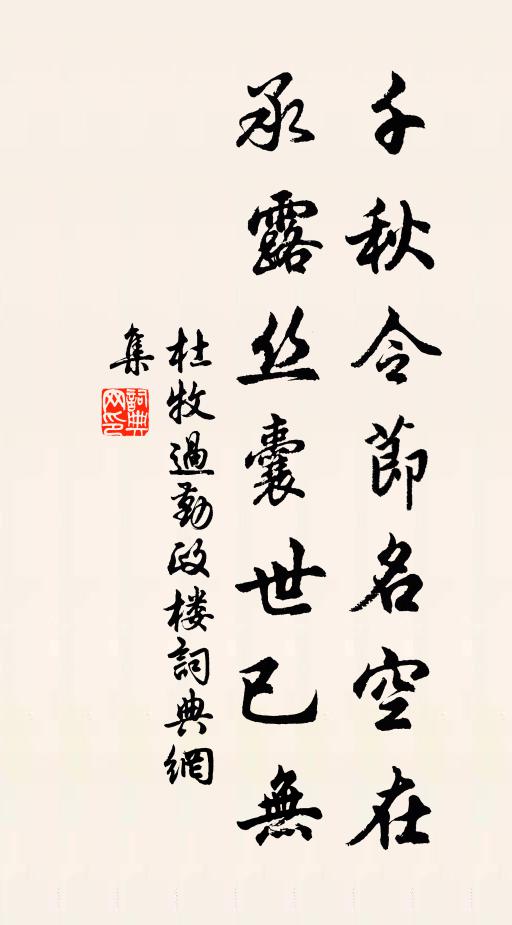 千秋令節名空在
承露丝囊世已無
杜牧過勤政楼詞典網
集
詞典
网印